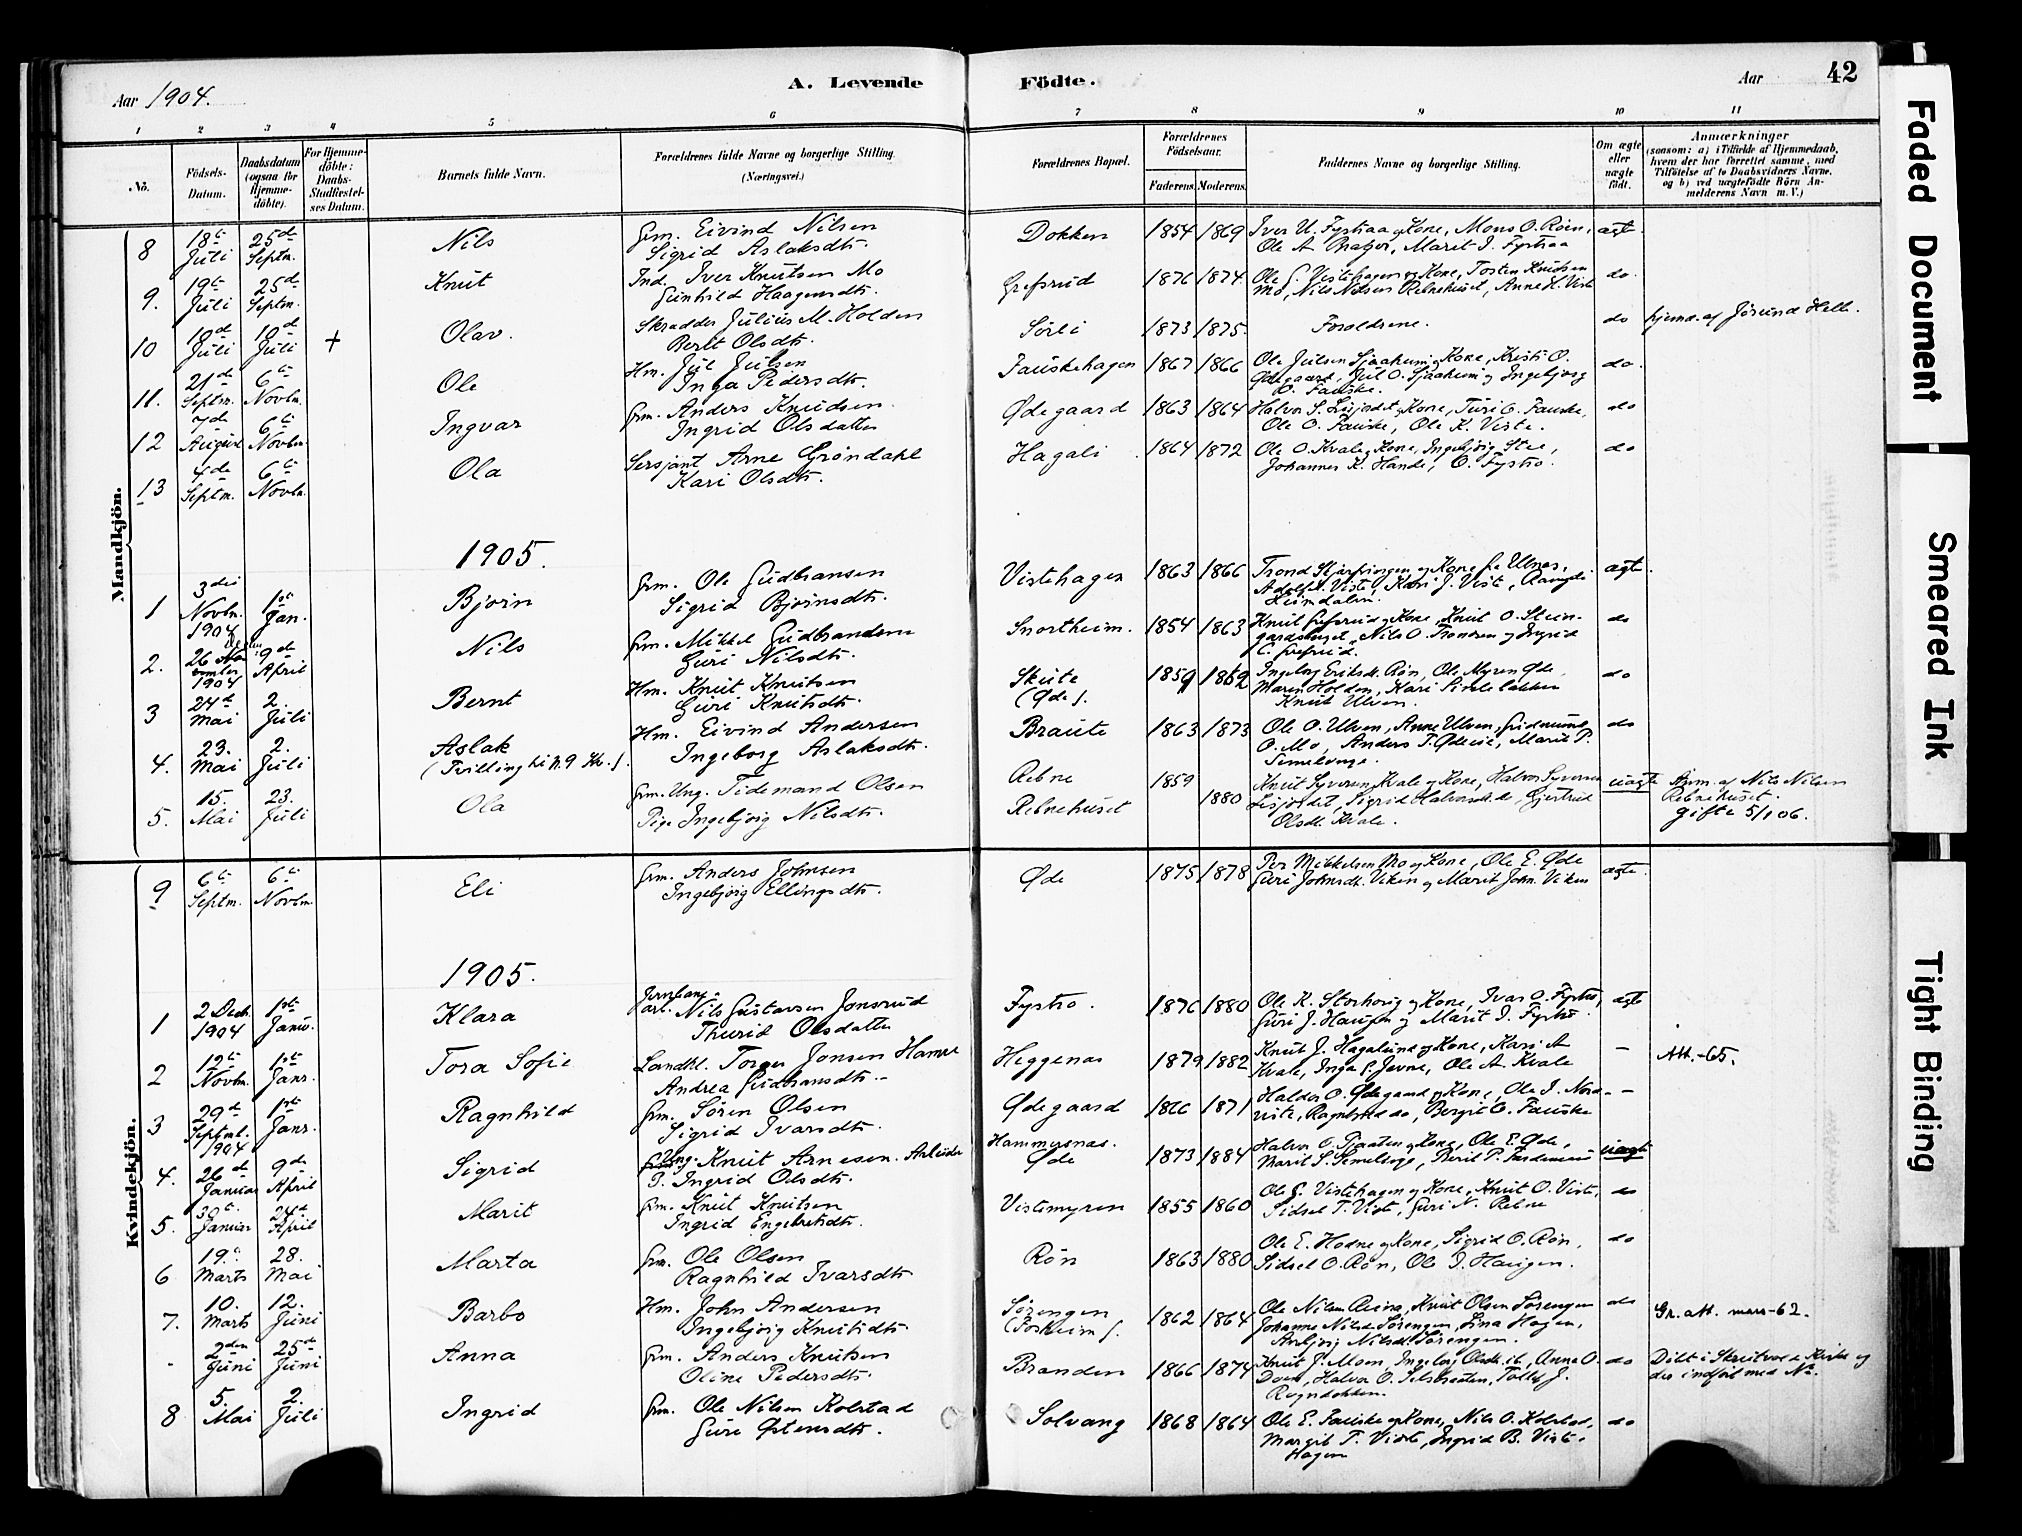 Aar 1904.
A. Levende Födte.
Aar
42
1 2 3 4 5 6 7 8 9 10 11
No.
Födsels-Datum.
Daabsdatum (ogsaa for Hjemme-döbte).
For Hjemme-döbte: Daabs-Stadfæstel-ses Datum.
Barnets fulde Navn.
Forældrenes fulde Navne og borgerlige Stilling. (Næringsvei.)
Forældrenes Bopæl.
Forældrenes Födselsaar.
Faderens. Moderens.
Faddernes Navne og borgerlige Stilling.
Om ægte eller uægte födt.
Anmærkninger
(saasom: a) i Tilfælde af Hjemmedaab, hvem der har forrettet samme, med Tilföielse af to Daabsvidners Navne, og b) ved uægtefödte Börn An-melderens Navn m. V.)
Mandkjön.
8 18de Juli 25de Septm. Nils Grm. Eivind Nilsen Sigrid Aslaksdtr. Dokken 1854 1869 Iver U. Fystraa og Kone, Mons O. Røen, Ole A., Marit I. Fystraa ægt.
9. 19de Juli 25de Septm. Knut Ind. Iver Knutsen Mo Gunhild Haagensdtr. Grefsrud 1876 1874 Ole G. Vistehagen og Kone, Tosten Knudsen Mo, Nils Nilsen Rebnehuset, Anne H. Viste do.
10 10de Juli 10de Juli + Olav. Skrædder Julius M. Holden Berit Olsdtr. Sørli 1873 1875 Forældrene. do hjemd. af Jørund Helle.
11. 21de Septm. 6te Novbr. Ole Hm. Jul Julsen Inga Pedersdtr. Fauskehagen 1867 1866 Ole Julsen Sjaaheim og Kone, Kristi O. Ødegaard, Jul O. Sjaaheim og Ingebjørg O. Fauske. do.
12 7de August 6te Novbr. Ingvar Grm. Anders Knudsen Ingrid Olsdatter Ødegaard 1863 1864 Halvor S. og Kone, Turi O. Fauske, Ole O. Fauske, Ole K. Viste. do
13 4de Septm. 6te Novbr. Ola Sersjant Arne Grøndahl Kari Olsdtr. Hagali 1864 1872 Ole O. Kvale og Kone, Ingebjørg Stee, Johannes K. Hande, O. Fystro. do
1905.
1 3die Novbr. 1904 1ste Jan. Bjørn Grm. Ole Gudbransen Sigrid Bjørnsdtr. Vistehagen 1863 1866 Trond og Kone fra Ulnes, Viste, Kari J. Viste, ægte.
2. 26 November 1904 9de April Nils Grm. Mikkel Gudbrandsen Guri Nilsdtr. Snortheim. 1854 1863 Knut Grefsrud og Kone, Knut O. Stein-, Nils O. Trondsen og Ingrid Grefsrud. do
3 24de Mai 2. Juli Bernt Hm. Knut Knutsen Guri Knutsdtr. Skute (Øde). 1859 1862 Ingeborg Eriksd. Røn, Ole Myren Øde, Maren Holden, Kari Sindrebakken Knut Ulven. do
4. 23. Mai 2. Juli Aslak (Tvilling til N. 9 Kv.). Hm. Eivind Andersen Ingeborg Aslaksdtr. Braute 1863 1873 Ole O. Ulven, Anne Ulven, Gudmund O. Mo, Anders T. Ødeeie, Marit P. Semeleng. do
5. 15. Mai 23. Juli Ola Grm. Ung. Tidemand Olsen Pige Ingebjørg Nilsdtr. Rebne Rebnehuset 1859 1880 Knut Syversen Kvale og Kone, Halvor Syversen, Sigrid Halvorsd. do, Gjertrud Olsdt. Kvale. uægte Anm. af Nils Nilsen Rebnehuset. gifte 5/1 06.
Kvindekjön.
9 6te Septm. 6te Novbr. Eli Grm. Anders Johnsen Ingebjørg Ellingsdtr. Øde 1875 1878 Per Mikkelsen Mo og Kone, Ole E. Øde Guri Johnsdt. Viken og Marit John. Viken ægte.
1905.
1 2 Decb. 1904 1ste Janu. Klara Jernbane-arb. Nils Gustavsen Jonsrud Thurid Olsdatter Fystro. 1876 1880 Ole K. Storhorig og Kone, Ivar O. Fystro, Guri J. Haugen og Marit I. Fystro. ægte
2 12te Novbr. 1ste Janr. Tora Sofie Landhl. Torger Jonsen Hamre Andrea Gudbransdtr. Heggenas 1879 1882 Knut J. Hagalund og Kone, Kari A Kvale, Inga G. Jevne, Ole A. Kvale – Att.-65.
3 29de Septmb. 1904 1ste Janr. Ragnhild Grm. Søren Olsen Sigrid Ivarsdtr. Ødegaard 1866 1871 Haldor O. Ødegaard og Kone, Ole I. Nord-viste, Ragnhild do, Bergit O. Fauske –
4. 26de Januar 9de April Sigrid Ung. Knut Arnesen. Arbeider P. Ingrid Olsdtr. Hammersnas. Øde 1873 1884 Halvor O. og Kone, Ole E. Øde, Marit S. Semeleng, Berit P. uægte
5. 30te Januar 24de April Marit Grm. Knut Knutsen Ingrid Engebretsdtr. Vistemyren 1855 1860 Ole G. Vistehagen og Kone, Knut O. Viste, Sidsel T. Viste, Guri N. Rebne do
6 19de Marts 28. Mai Marta Grm. Ole Olsen Ragnhild Ivarsdtr. Røn 1863 1880 Ole E. Hovne og Kone, Sigrid O. Røn, Sidsel O. Røn, Ole I. Haugen. do
7. 10. Marts 12. Juni Barbo Hm. John Andersen Ingebjørg Knutsdtr. Sørengen (Forheim). 1862 1864 Ole Nilsen, Knut Olsen Sørengen Johanne Nilsd. Sørengen, Lina Hagen, Anbjørg Nilsdt. Sørengen. do Gr. att. mars-62.
- 2den Juni 25de Juni Anna Grm. Anders Knutsen Oline Pedersdtr. Branden 1866 1874 Knut J. Moen, Ingeborg Olsdt. ib, Anne O., Halvor O., Rogndokken. do Døbt i Skrutvold Kirke og der indført med No.
8 5. Mai 2. Juli Ingrid Grm. Ole Nilsen Kolstad Guri Østensdtr. Solvang 1868 1864 Ole E. Fauske og Kone, Nils O. Kolstad, Margit T. Viste, Ingrid B. Viste-Hagen do
Faded Document
Smeared Ink
Tight Binding